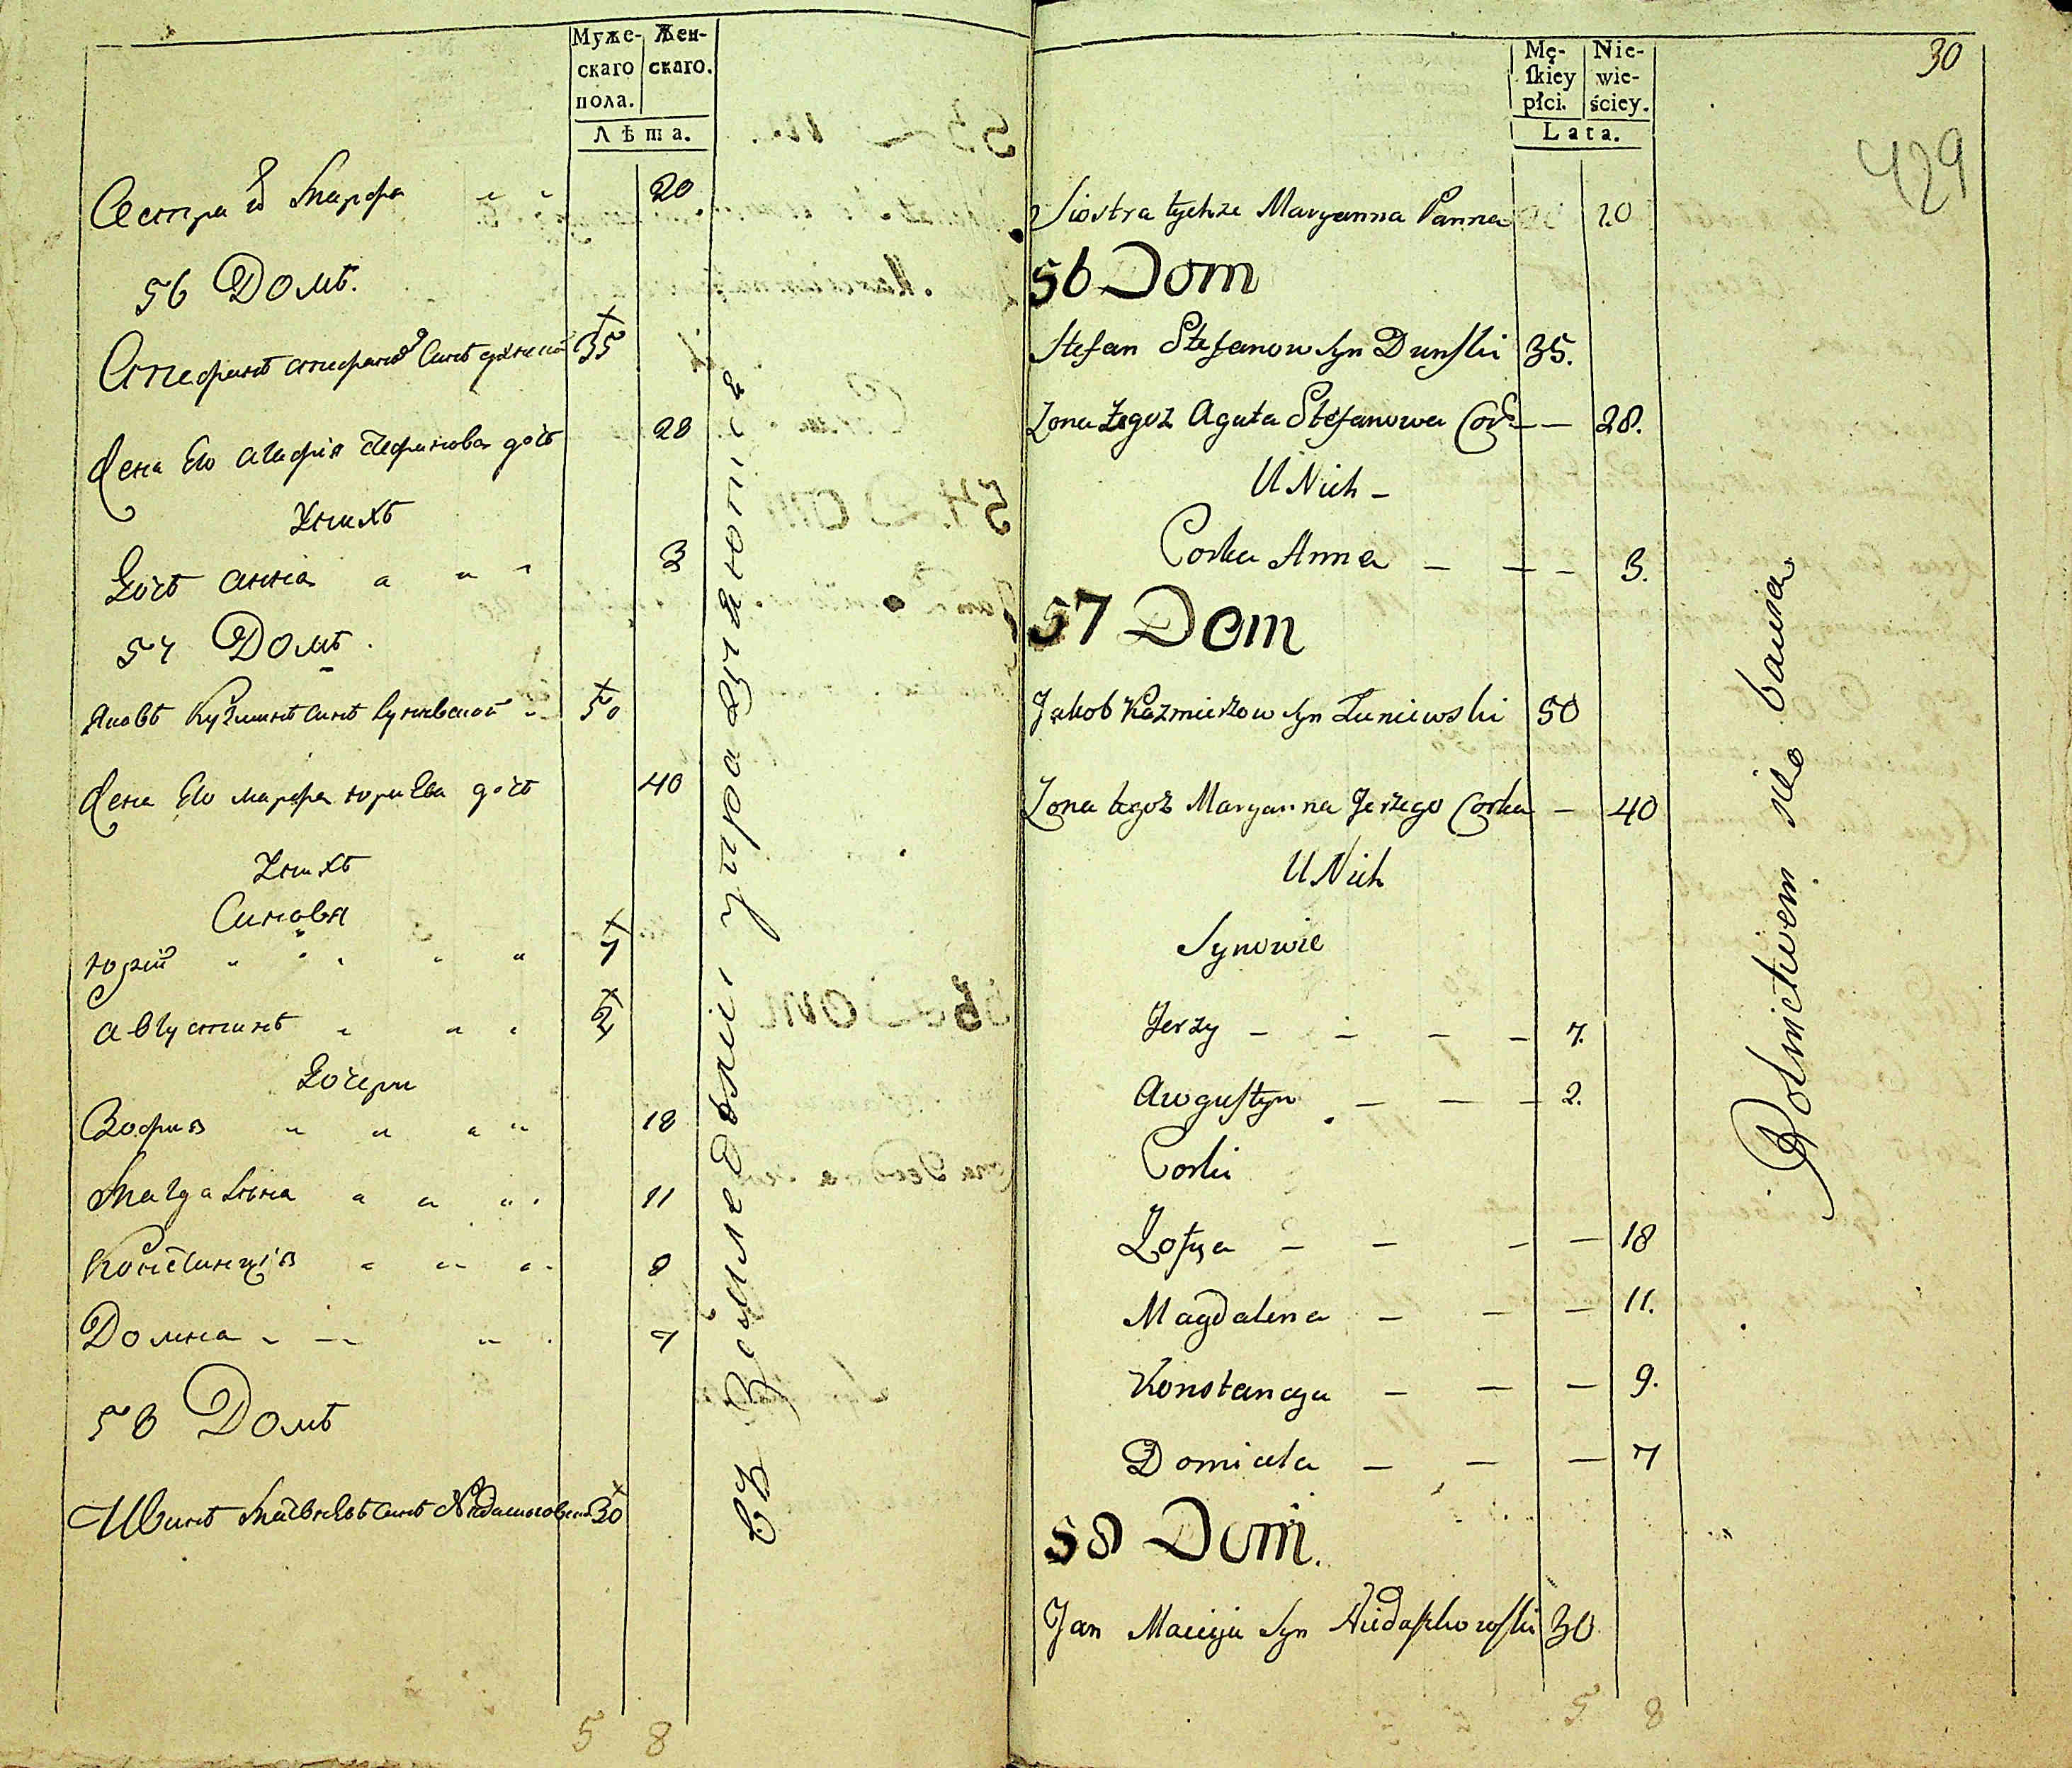 Муже-
скаго
пола.
Жен-
скаго.
Лѣта.
Сестра Марфа 20
56 Домъ.
Стефанъ Стефановъ Синъ 35
Жена Ею Агафія Стефанова дочъ 28
Унихъ
Дочъ Анна 3
57 Домъ.
Яковъ Кузминъ Синъ Луневской 50
Жена Ею Марфа Юриева дочъ 40
Унихъ
Синовя
Юрий 7
Августинъ 2
Дочери
Зофия 18
Магдалѣна 11
Констанция 9
Домна 7
58 Домъ
Иванъ Матвѣевъ Синъ 30
5 8
въ Земледѣлии упражняются
Mę-
skiey
płci.
Nie-
wie-
ściey.
Lata.
30
429
Siostra tychże Maryanna Panna 20
56 Dom
Stefan Stefanow Syn Dunski 35.
Zona tegoż Agata Stefanowa Cor. — — 28.
U Nich -
Corka Anna — — - 3.
57 Dom
Jakob Kazmierzow Syn Łuniewski 50
Zona tegoż Maryanna Jerzego Corka — 40
U Nich
Synowie
Jerzy — - — — 7.
Awgustyn — — — 2.
Corki
Zofya — — — — 18
Magdalena — — — 11.
Konstancya — — — 9.
Domicela — — — 7
58 Dom.
Jan Macieja Syn Nidaszkowski 30
5 8
Rolnictwem się bawia